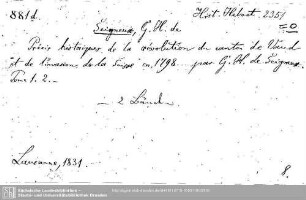 881d. Hist. Helvet. 2351
Seigneux, G. H. de
Précis historique de la révolution du canton de Vaud
et de l'invasion de la Suisse en 1798. par G. H. de Seigneux.
Tome 1. 2.
2 Bände
Lausanne, 1831. 8.